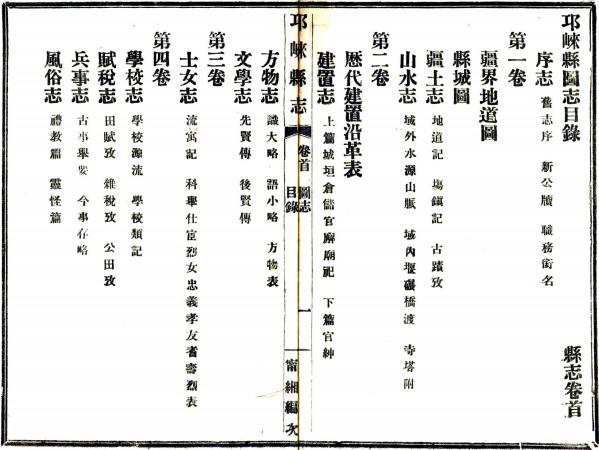 邛崍縣圖志目錄 縣志卷首
序志 舊志序 新公牘 職務銜名
第一卷
疆界地道圖
縣城圖
疆土志 地道記 場鎮記 古蹟攷
山水志 域外水源山脈 域內堰碾橋渡 寺塔附
第二卷
歷代建置沿革表
建置志 上篇城垣倉儲官廨廟祀 下篇官紳
邛崍縣志 卷首 圖志目錄 一 甯緗編次
方物志 識大略 語小略 方物表
文學志 先賢傳 後賢傳
第三卷
士女志 流寓記 科舉仕宦烈女忠義孝友耆壽烈表
第四卷
學校志 學校源流 學校類記
賦稅志 田賦攷 雜稅攷 公田攷
兵事志 古事舉要 今事存略
風俗志 禮教篇 靈怪篇